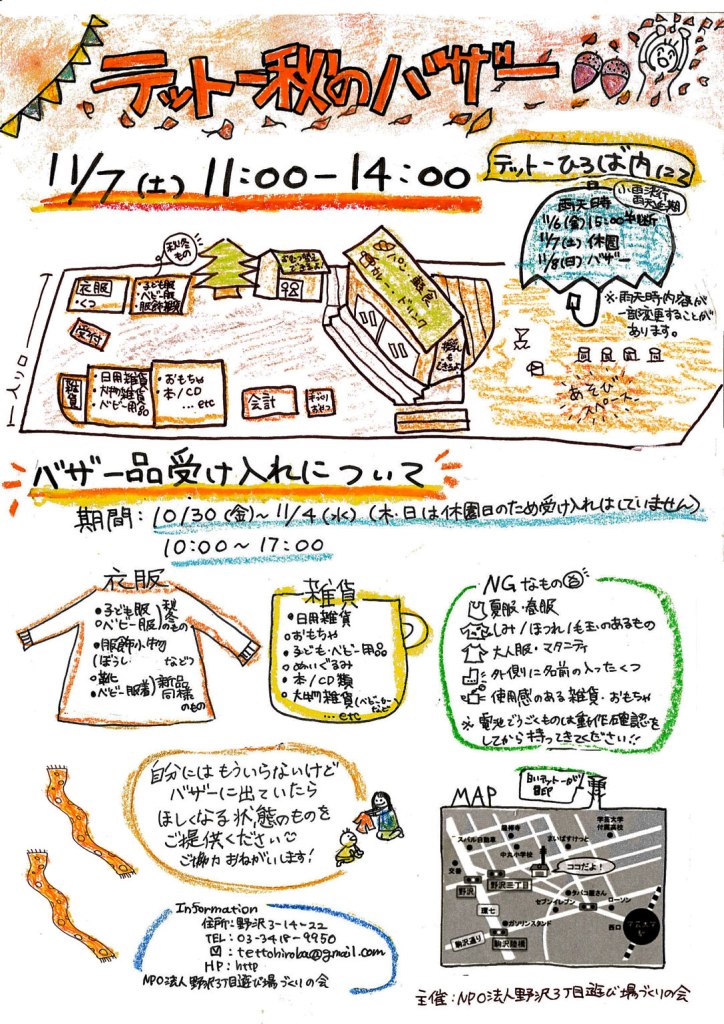 テットー秋のバザー
11/7(土) 11:00-14:00
テットーひろば内にて
小雨決行
雨天延期
雨天時
11/6(金)15:00判断
11/7(土) 休園
11/8(日) バザー
※雨天時内容が
一部変更することが
あります。
秋冬もの
衣服
・くつ
・子ども服
・ベビー服
・服飾雑貨
おむつ替え
できるよ!
パン・軽食
カレー・ドリンク
授乳も
できるよ
受付
入り口
雑貨
・日用雑貨
・大物雑貨
・ベビー用品
・おもちゃ
・本/CD
...etc
会計
手作り
おやつ
あそび
スペース
バザー品受け入れについて
期間:10/30(金)~11/4(水)(木・日は休園日のため受け入れはしていません)
10:00~17:00
衣服
・子ども服
・ベビー服
秋冬のもの
・服飾小物
(ぼうし などっ
・靴
・ベビー服(肌着)
新品同様のもの
雑貨
・日用雑貨
・おもちゃ
・子ども・ベビー用品
・ぬいぐるみ
・本/CD類
・大物雑貨(ベビーカーなど)
...etc
NGなもの
夏服・春服
しみ/ほつれ/毛玉のあるもの
大人服・マタニティ
外側に名前の入ったくつ
使用感のある雑貨・おもちゃ
※電池でうごくものは動作確認を
してから持ってきてください!!
自分にはもういらないけど
バザーに出ていたら
ほしくなる状態のものを
ご提供ください
ご協力おねがいします!
MAP
白いテットーが
目印
龍禅寺
学芸大学
附属高校
スバル自動車
まいばすけっと
中丸小学校
交番
ココだよ!
野沢
野沢三丁目
タバコ屋さん
環七
セブンイレブン
ローソン
ガソリンスタンド
西口
学芸大学
駅
駒沢通り
駒沢陸橋
Information
住所:野沢3-14-22
TEL:03-3418-9950
:tettohiroba@gmail.com
HP:http
NPO法人野沢3丁目遊び場づくりの会
主催:NPO法人野沢3丁目遊び場づくりの会